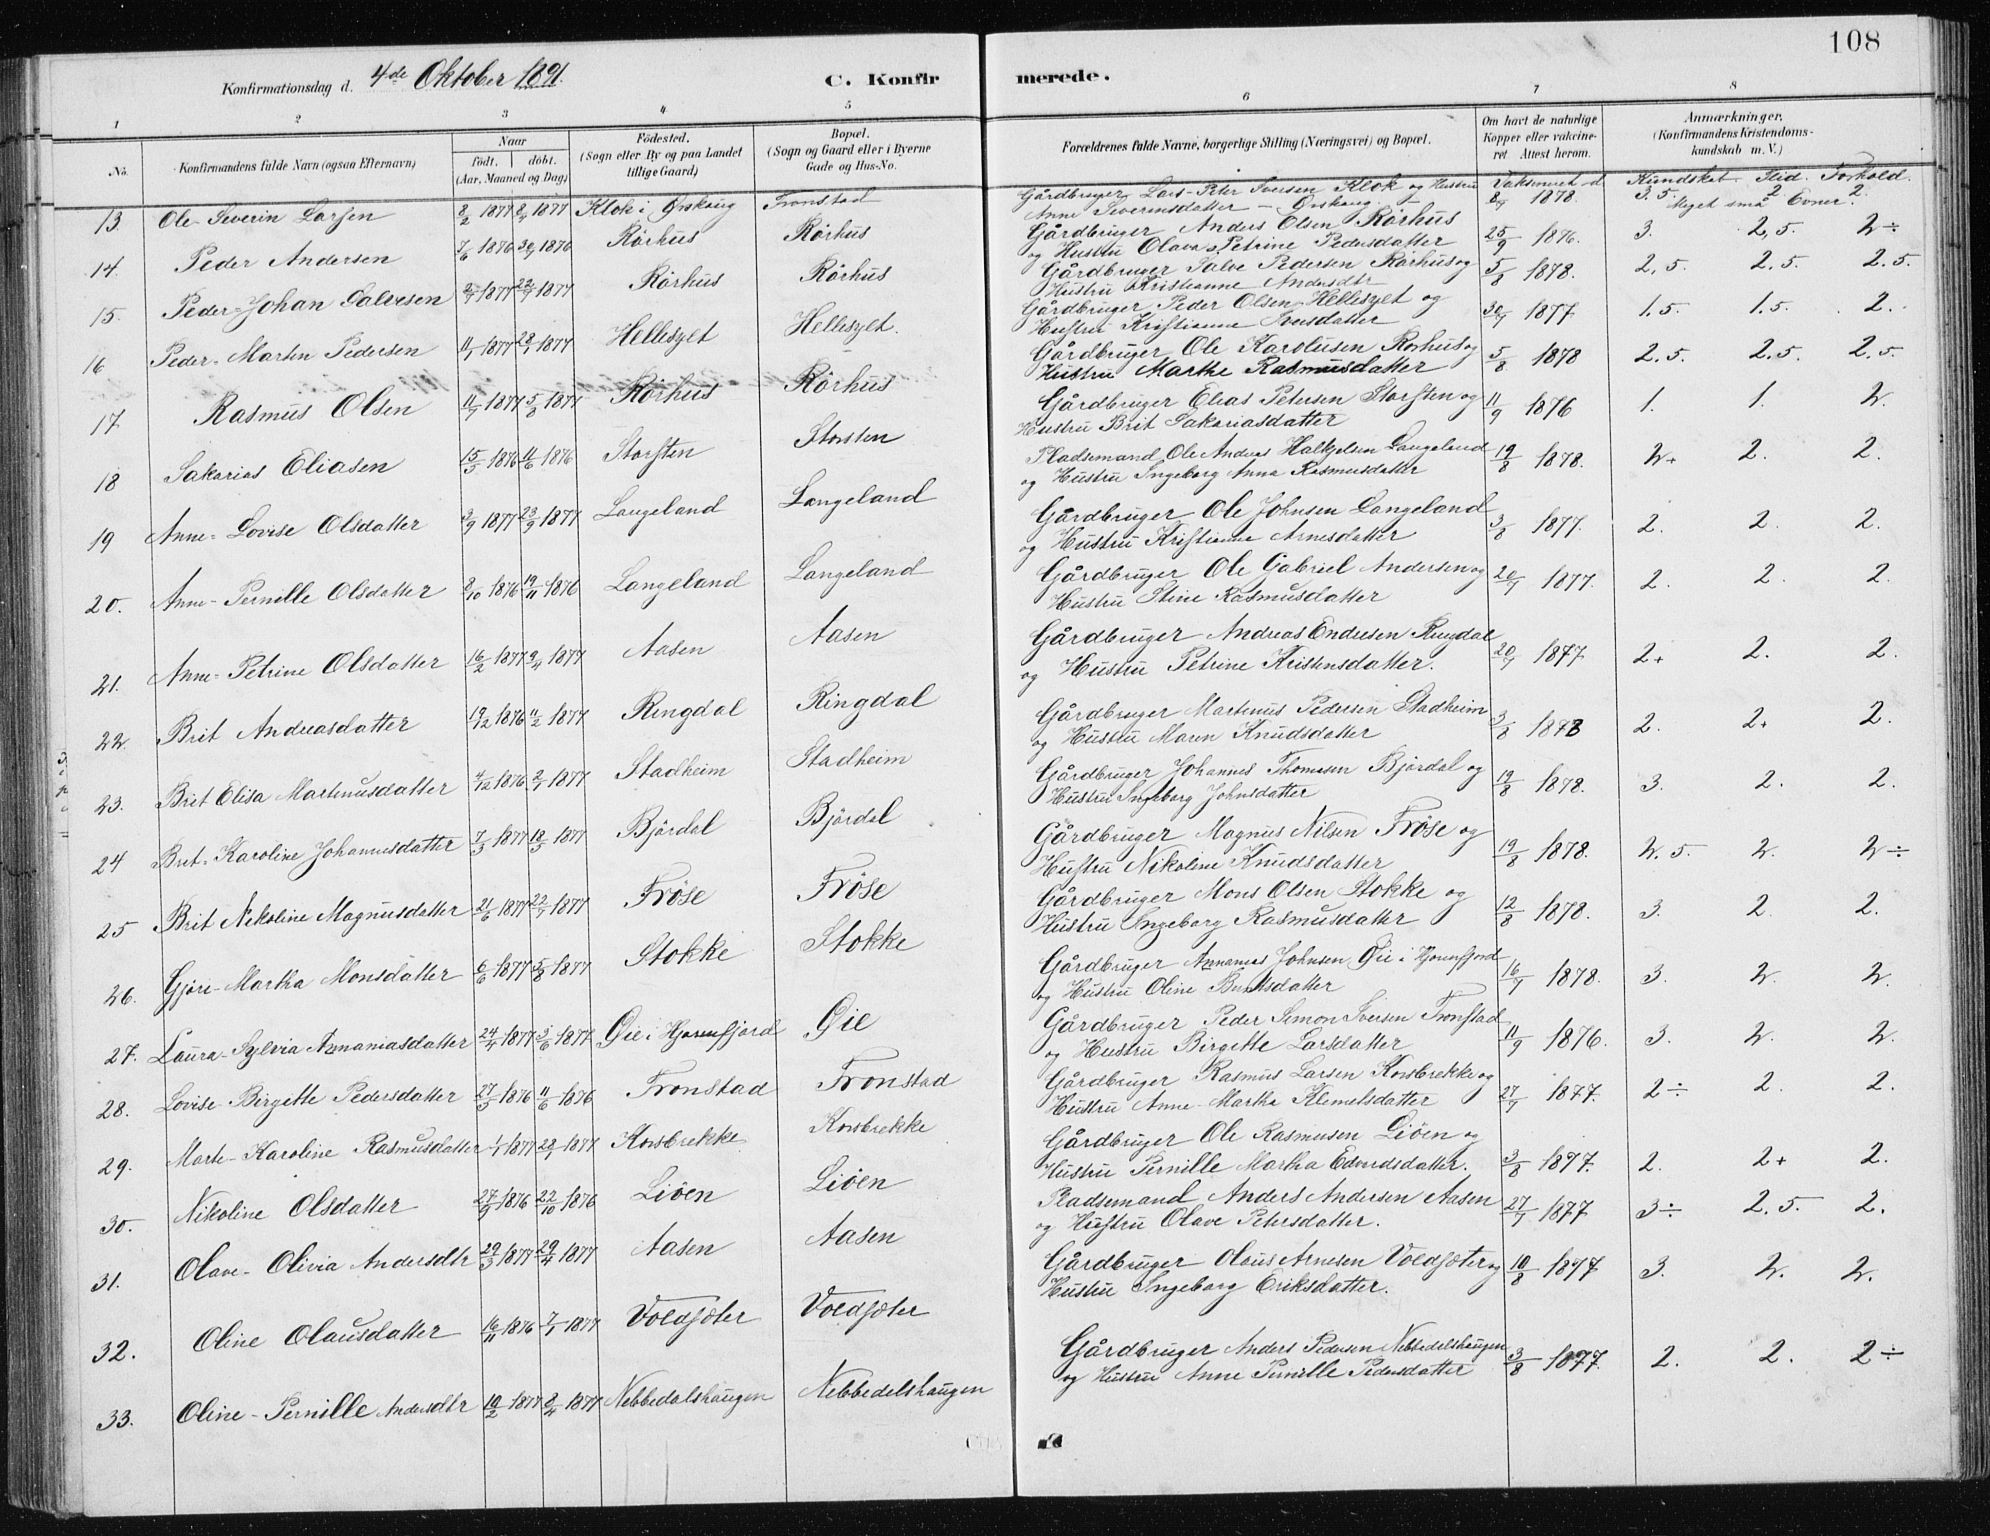 108
Konfirmationsdag d. 4de Oktober 1891.
C. Konfirmerede.
1 2 3 4 5 6 7 8
No.
Konfirmandens fulde Navn (ogsaa Efternavn)
Naar
födt. döbt.
(Aar, Maaned og Dag)
Födested.
(Sogn eller By og paa Landet
tillige Gaard)
Bopæl.
(Sogn og Gaard eller i Byerne
Gade og Hus-No.
Forældrenes fulde Navne, borgerlige Stilling (Næringsvei) og Bopæl.
Om havt de naturlige
Kopper eller vakcine-
ret. Attest herom.
Anmærkninger.
(Konfirmandens Kristendoms-
kundskab m. V.)
Kundskab Flid. Forhold.
13. Ole Severin Larsen 8/2 1877 8/4 1877 Klok i Ørskoug Fronstad
Gårdbruger Lars-Peter Iversen Klok og Hustru
Anne Severinsdatter - Ørskoug
Vaksineret d 8/7 1878. 3.5. 2 2.
Meget små Evner.
14. Peder Andersen 7/6 1876 30/7 1876 Rörhus Rörhus
Gårdbruger Anders Olsen Rörhus
og Hustru Olava Petrine Pedersdatter 25/9 1876. 3. 2,5. 2÷
15. Peder-Johan Salvesen 2/7 1877 22/7 1877 Rörhus Rörhus
Gårdbruger Salve Pedersen Rörhus og
Hustru Kristianne Andersdtr 5/8 1878. 2,5. 2.5. 2.5.
16 Peder-Martin Pedersen 11/7 1877 29/7 1877 Hellesylt Hellesylt.
Gårdbruger Peder Olsen Hellesylt og
Hustru Kristianne Iversdatter 30/7 1877 1.5. 1.5. 2.
17. Rasmus Olsen 11/7 1877 5/8 1877 Rörhus Rörhus
Gårdbruger Ole Karolusen Rorhus og
Hustru Marthe Rasmusdatter 5/8 1878 2.5. 2,5. 2,5.
18 Sakarias Eliasen 15/5 1876 11/6 1876 Storsten Storsten
Gårdbruger Elias Petersen Storsten og
Hustru Brit Sakariasdatter 11/9 1876 1. 1. 2.
19 Anne-Lovise Olsdatter 3/9 1877 23/9 1877 Langeland Langeland
Pladsemand Ole Andreas Halkjelsen Langeland
og Hustru Ingeborg Anna Rasmusdatter 19/8 1878. 2+ 2. 2.
20. Anne-Pernille Olsdatter 8/10 1876 19/11 1876 Langeland Langeland
Gårdbruger Ole Johnsen Langeland
og Hustru Kristianne Arnesdatter 3/8 1877. 2. 2. 2.
21. Anne-Petrine Olsdatter 16/2 1877 9/4 1877 Aasen Aasen
Gårdbruger Ole Gabriel Andersen og
Hustru Stine Rasmusdatter 20/7 1877. 2 2. 2.
22. Brit Andreasdatter 19/12 1876 11/2 1877 Ringdal Ringdal
Gårdbruger Andreas Endresen Ringdal
og Hustru Petrine Kristensdatter. 20/7 1877 2+ 2. 2.
23. Brit Elisa Martinusdatter 4/12 1876 2/4 1877 Stadheim Stadheim
Gårdbruger Martinus Pedersen Stadheim
og Hustru Maren Knudsdatter 3/8 1878 2. 2+ 2.
24 Bret-Karoline Johannesdatter 7/3 1877 18/3 1877 Björdal Björdal
Gårdbruger Johannes Thomasen Björdal og
Hustru Ingeborg Johnsdatter 19/8 1878. 3. 2. 2.
25 Brit Nikoline Magnusdatter 21/6 1877 22/7 1877 Fröse Fröse
Gårdbruger Magnus Nilsen Fröse og
Hustru Nikoline Knudsdatter 19/8 1878. 2.5. 2. 2÷
26. Gjöri-Martha Monsdatter 6/6 1877 5/8 1877 Stokke Stokke
Gårdbruger Mons Olsen Stokke og
Hustru Ingeborg Rasmusdatter 12/8 1878. 3. 2. 2.
27. Laura-Sylvia Annaniasdatter 24/4 1877 3/6 1877 Øie i Hjörunfjord Øie
Gårdbruger Annanias Johnsen Øie i Hjörunfjord
og Hustru Oline 16/7 1878. 3. 2. 2.
28. Lovise Birgette Pedersdatter 27/5 1876 11/6 1876 Fronstad Fronstad
Gårdbruger Peder Simon Iversen Fronstad
og Hustru Birgette Larsdatter 11/9 1876. 3. 2. 2.
29. Marte-Karoline Rasmusdatter 1/7 1877 29/7 1877 Korsbrekke Korsbrekke
Gårdbruger Rasmus Larsen Korsbrekke og
Hustru Anne-Martha Klemetsdatter 27/7 1877. 2÷ 2. 2.
30. Nikoline Olsdatter 27/9 1876 22/10 1876 Liöen Liöen
Gårdbruger Ole Rasmusen Liöen og
Hustru Pernille Martha Edvardsdatter. 3/8 1877. 2. 2+ 2.
31. Olave-Olivia Andersdtr 29/3 1877 29/4 1877 Aasen Aasen
Pladsemand Anders Andersen Aasen
og Hustru Olave Petersdatter. 27/7 1877 3÷ 2.5. 2.
32. Oline Olausdatter 16/11 1876 7/1 1877 Voldsæter Voldsæter
Gårdbruger Olaus Arnesen Voldsæter og
Hustru Ingeborg Eriksdatter. 10/8 1877 3. 2. 2.
33. Oline-Pernille Andersdtr 10/2 1877 8/4 1877 Nebbedalshaugen Nebbedelshaugen
Gårdbruger Anders Pedersen Nebbedelshaugen
og Hustru Anne Pernille Pedersdatter 3/8 1877. 2. 2. 2÷